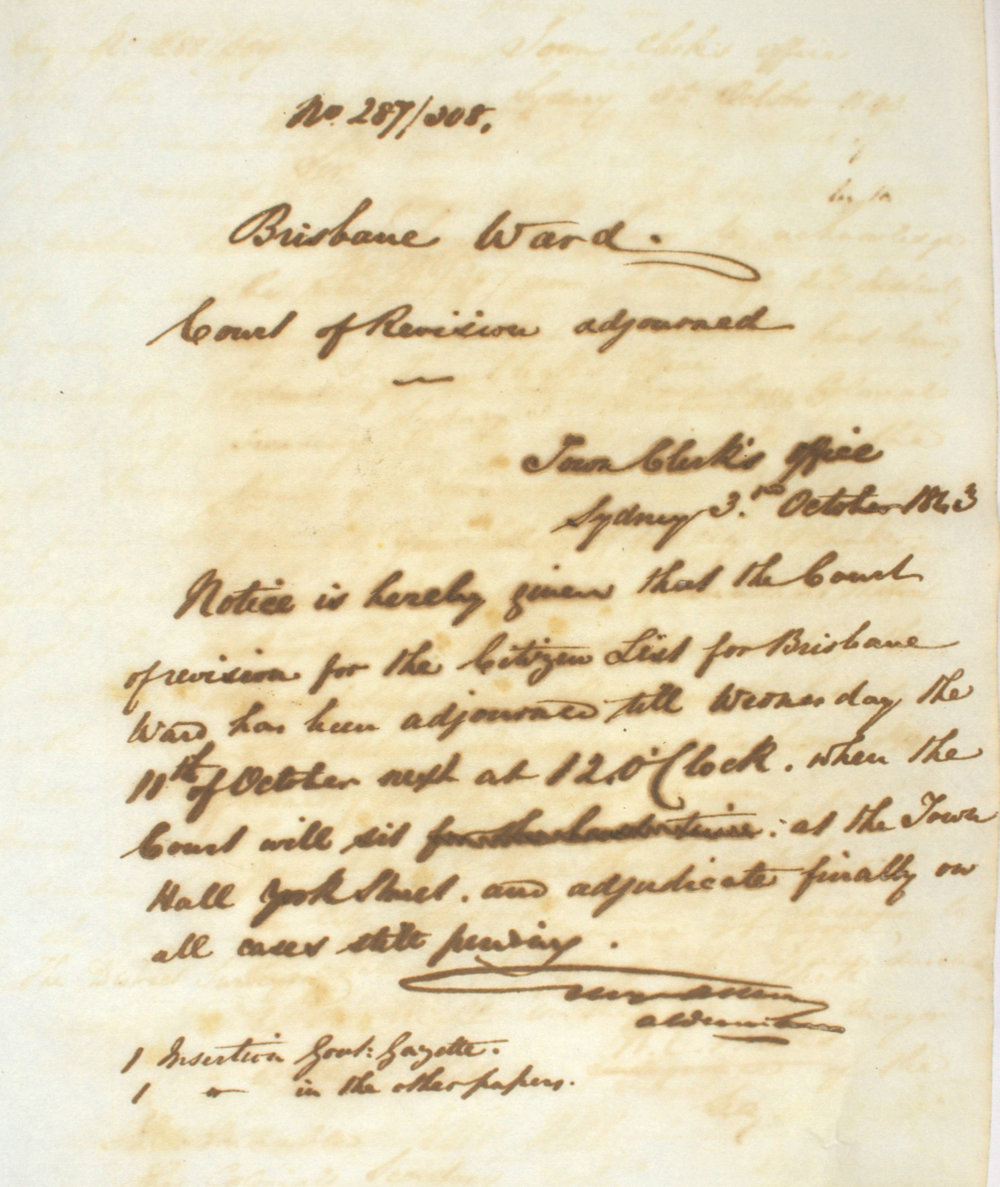 No. 287/308.
Brisbane Ward.
Court of Revision adjourned
Town Clerk's office
Sydney 3.rd October 1843
Notice is hereby given that the Court
of revision for the Citizen List for Brisbane
Ward has been adjourned till Wednesday the
11th of October next at 12.O'Clock. when the
Court will sit at the Town
Hall York Street. and adjudicate finally on
all cases still pending.
Alderman
1 Insertion Govt: Gazette.
1 " in the other papers.